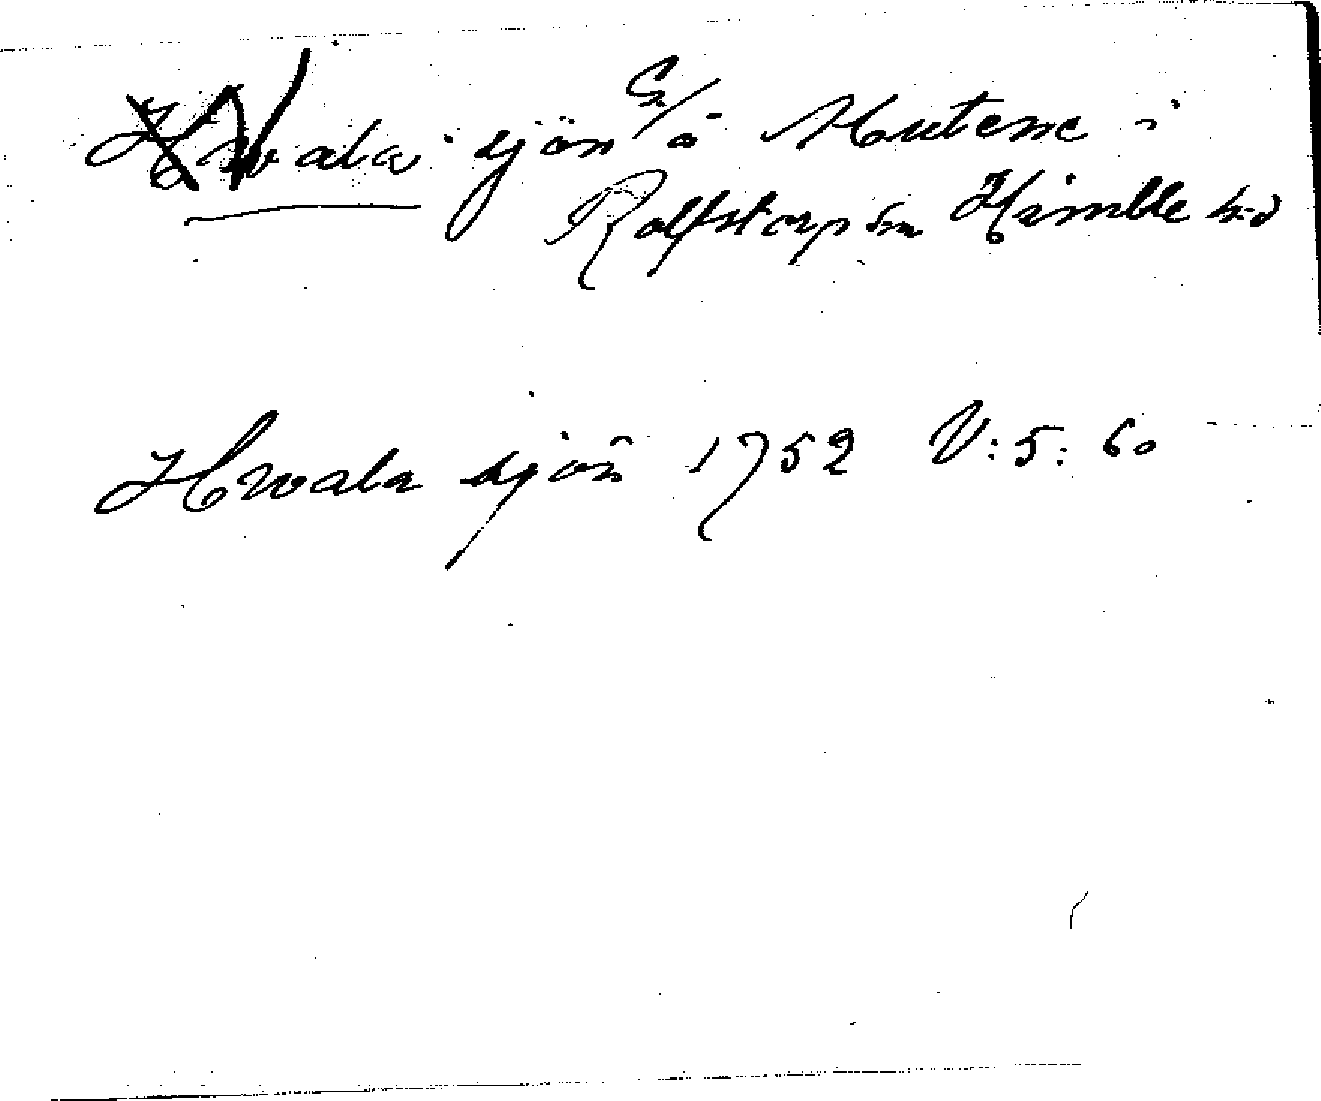 Vala sjön G/ å Mutene i
Rolfstorp sn Himble hd
Hwala sjön 1752 V:5:60